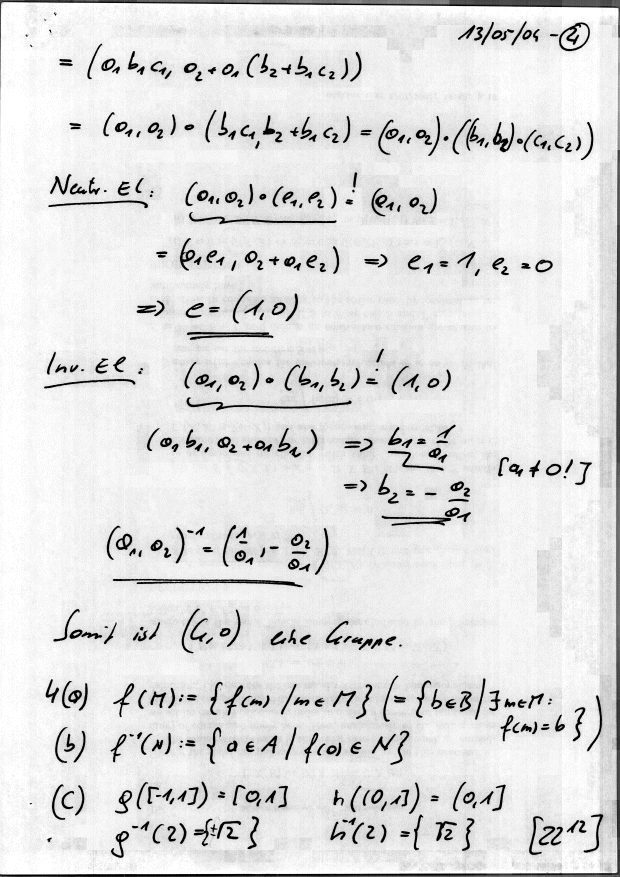 13/05/04 - ④
= (a₁b₁c₁, a₂+a₁(b₂+b₁c₂))
= (a₁,a₂)∘(b₁c₁,b₂+b₁c₂) = (a₁,a₂)∘((b₁,b₂)∘(c₁,c₂))
Neutr. El: (a₁,a₂)∘(e₁,e₂) =! (a₁,a₂)
= (a₁e₁, a₂+a₁e₂) => e₁=1, e₂=0
=> e=(1,0)
Inv. El: (a₁,a₂)∘(b₁,b₂) =! (1,0)
(a₁b₁, a₂+a₁b₂) => b₁ = 1/a₁ [a₁≠0!]
=> b₂ = - a₂/a₁
(a₁,a₂)⁻¹ = (1/a₁, - a₂/a₁)
Somit ist (G,∘) eine Gruppe.
4(a) f(M):= {f(m) / m∈M} (= {b∈B | ∃m∈M: f(m)=b})
(b) f⁻¹(N):= {a∈A / f(a)∈N}
(c) g([-1,1]) = [0,1] h((0,1]) = (0,1]
g⁻¹(2)={±√2} h⁻¹(2) = {√2} [22¹²]